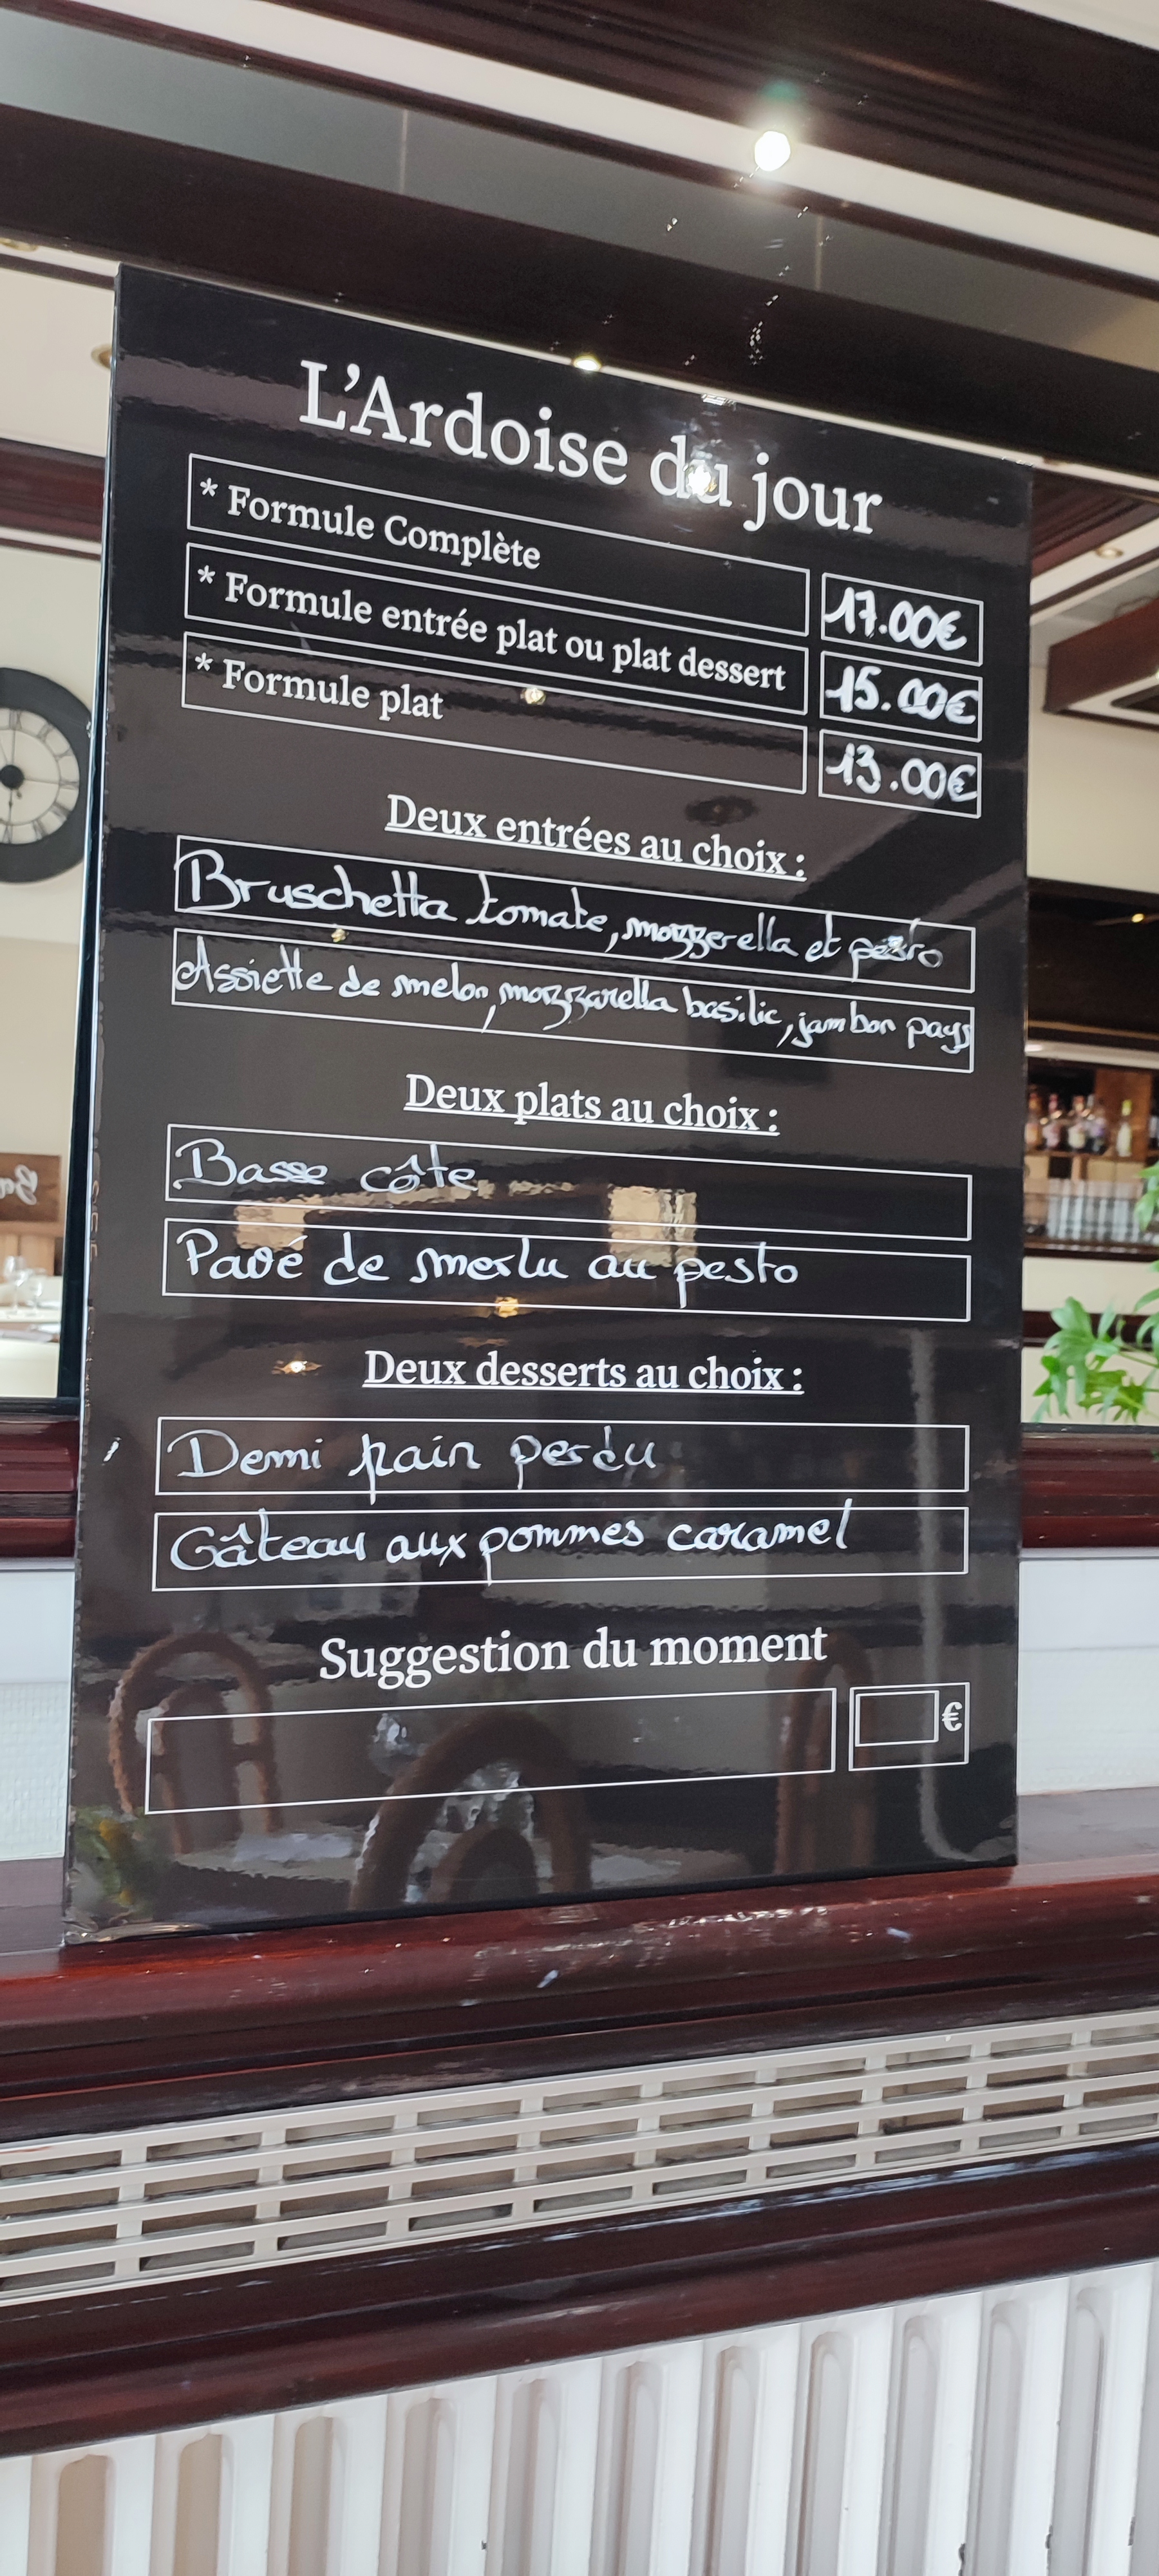 L'Ardoise du jour
* Formule Complète 17.00€
* Formule entrée plat ou plat dessert 15.00€
* Formule plat 13.00€
Deux entrées au choix :
Bruschetta tomate, mozzerella et pesto
Assiette de melon, mozzarella basilic, jambon pays
Deux plats au choix :
Basse côte
Pavé de merlu au pesto
Deux desserts au choix :
Demi pain perdu
Gâteau aux pommes caramel
Suggestion du moment
€